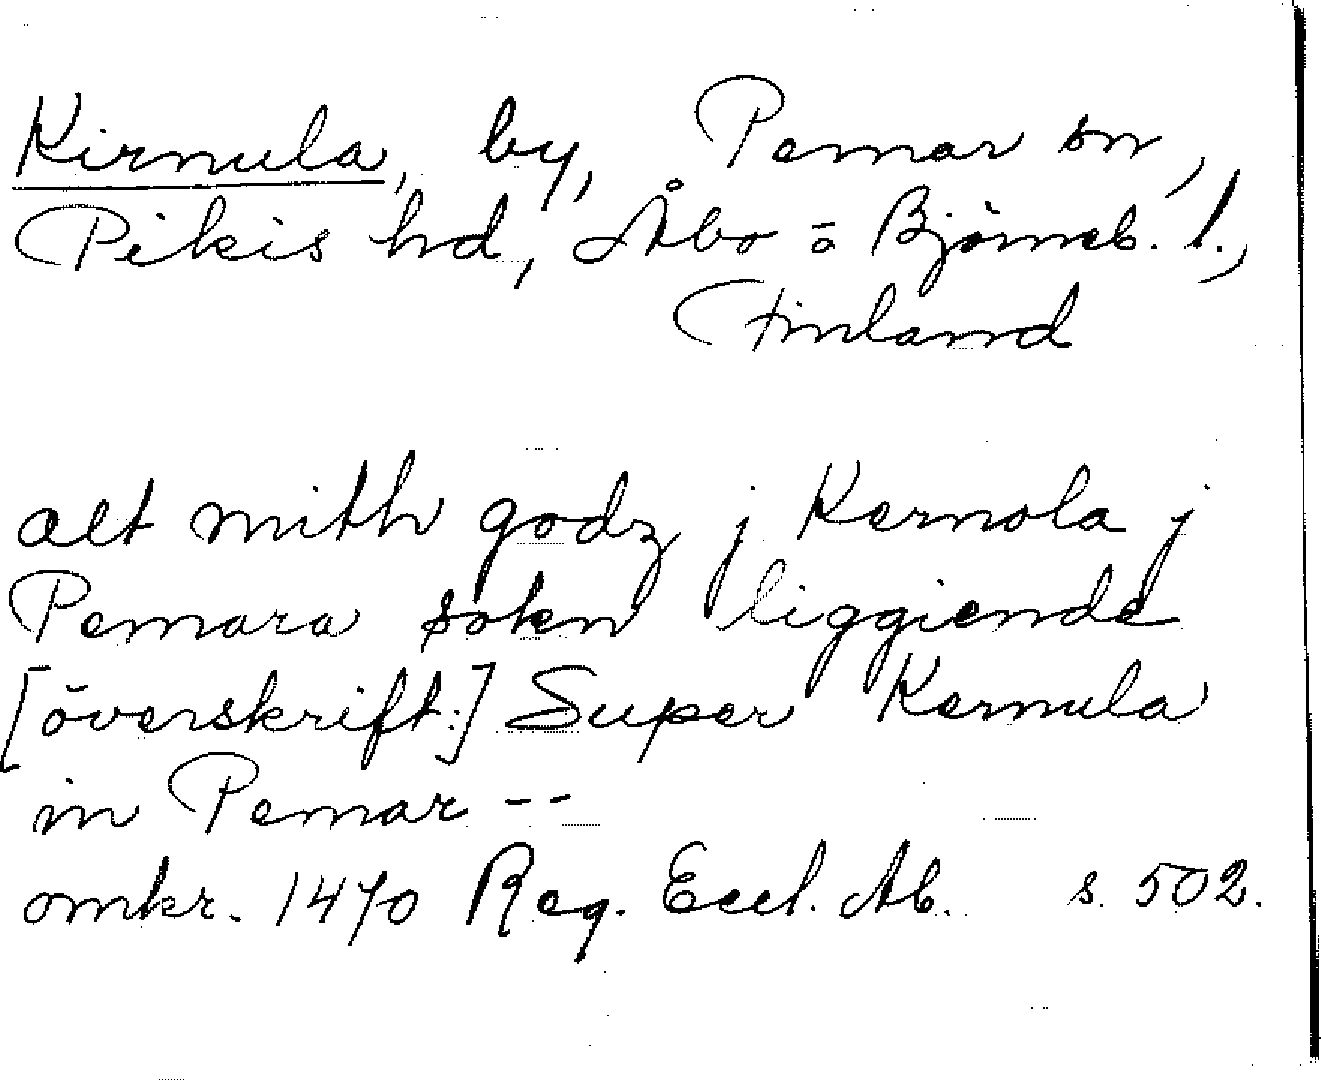 Kirmula, by, Pemar sn,
Pikis hd, Åbo o Björneb. l.,
Finland
alt mith godz j Kernola j
Pemara sokn liggiende
[överskrift:] Super Kernula
in Pemar --
omkr. 1470 Reg. Eccl. Ab. s. 502.